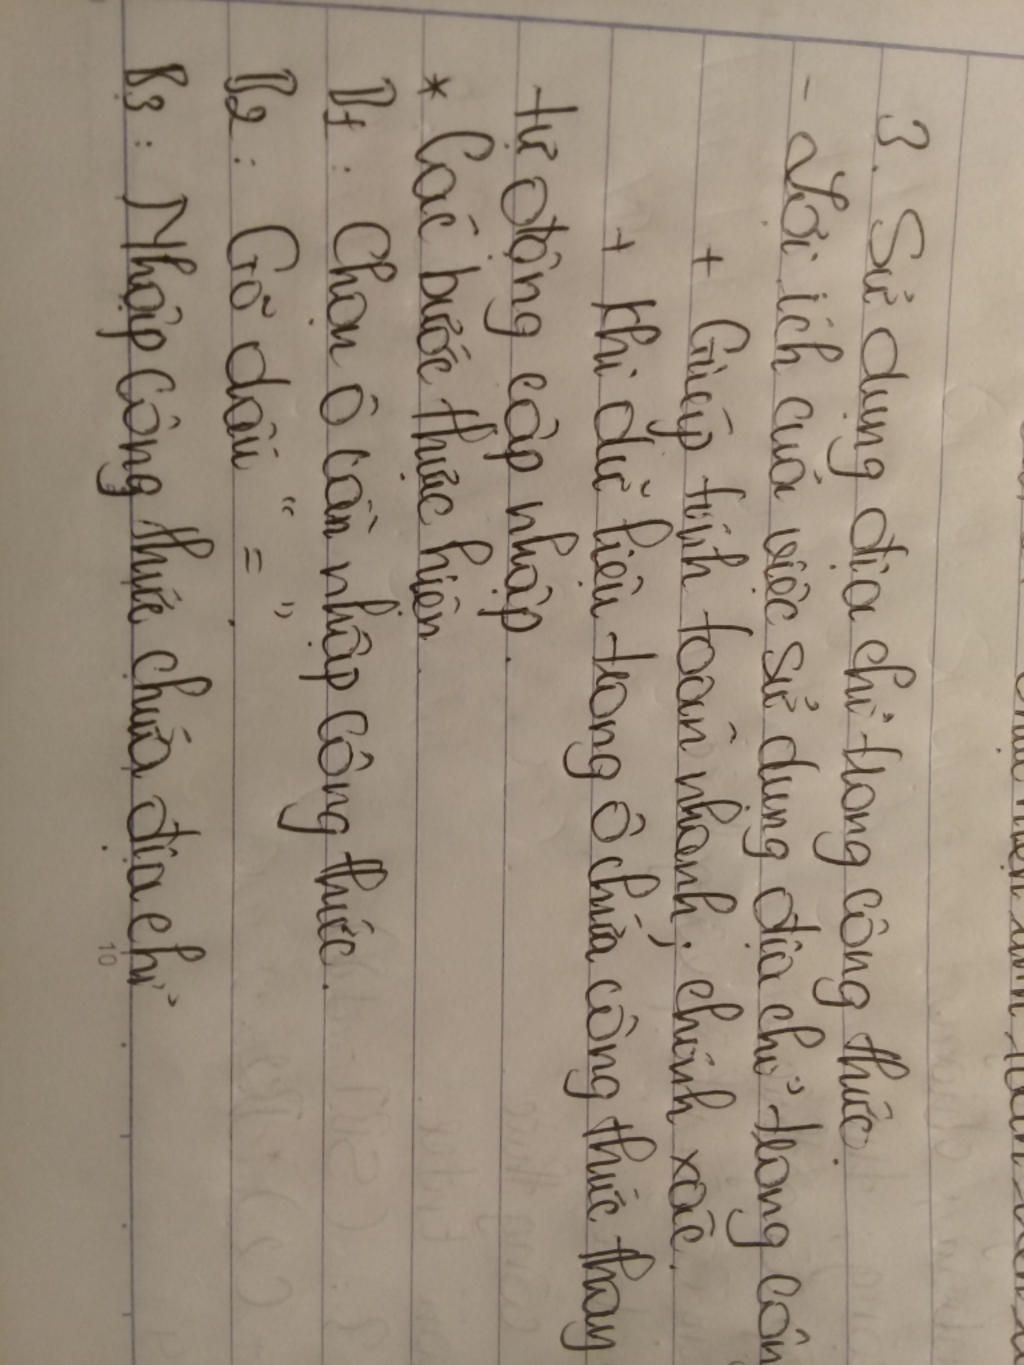 3. Sử dụng địa chỉ trong công thức.
- Lợi ích của việc sử dụng địa chỉ trong côn
+ Giúp tính toán nhanh, chính xác.
+ Khi dữ liệu trong ô chứa công thức thay
tự động cập nhập.
* Các bước thực hiện.
B1: Chọn ô cần nhập công thức.
B2: Gõ dấu "=".
B3: Nhập công thức chứa địa chỉ
10